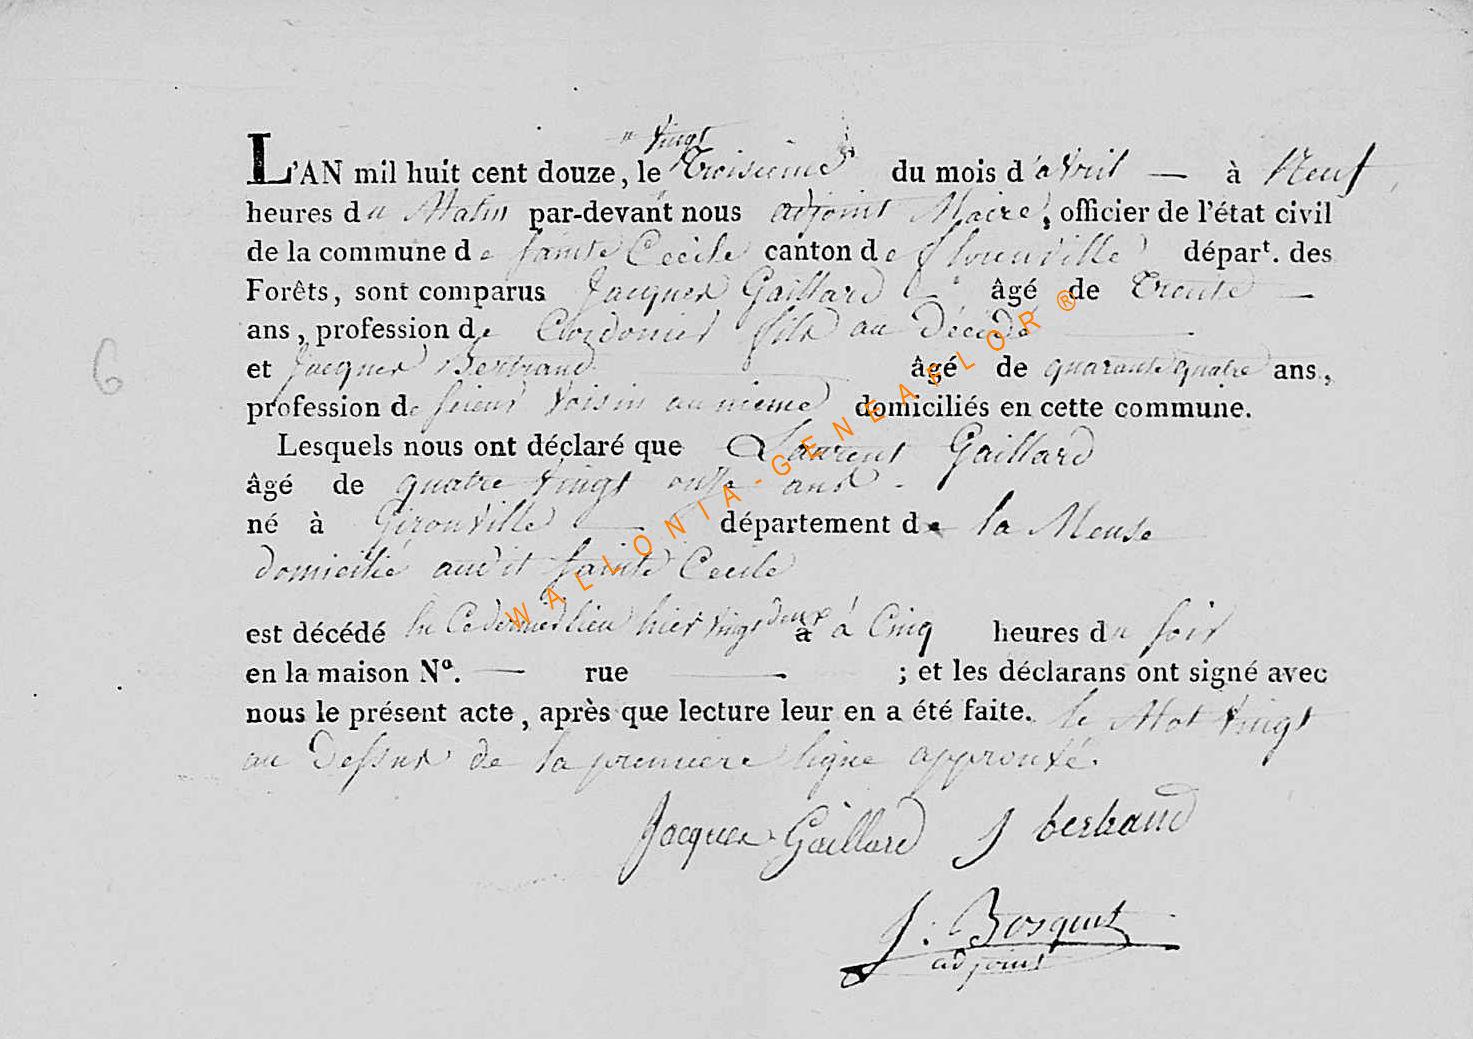 vingt
L'AN mil huit cent douze, le troisieme du mois d'avril — à Neuf
heures du Matin par-devant nous adjoint Maire, officier de l'état civil
de la commune de sainte Cecile canton de florenville départ. des
Forêts, sont comparus Jacques Gaillard — âgé de trente —
ans, profession de Cordonier fils au décédé —
et Jacques Bertrand — âgé de quarante quatre ans,
profession de sieur voisin au meme domiciliés en cette commune.
Lesquels nous ont déclaré que Laurent Gaillard
âgé de quatre vingt onze ans -
né à Gironville — département de la Meuse
domicilié audit sainte Cecile
est décédé en Ce dernier lieu hier vingt deux à à Cinq heures du soir
en la maison Nº. — rue — ; et les déclarans ont signé avec
nous le présent acte, après que lecture leur en a été faite. le Mot vingt
au dessus de la premiere ligne approuvé.
Jacques Gaillard J bertrand
J. Bosquet
adjoint
6
WALLONIA-GENEAFLOR ®